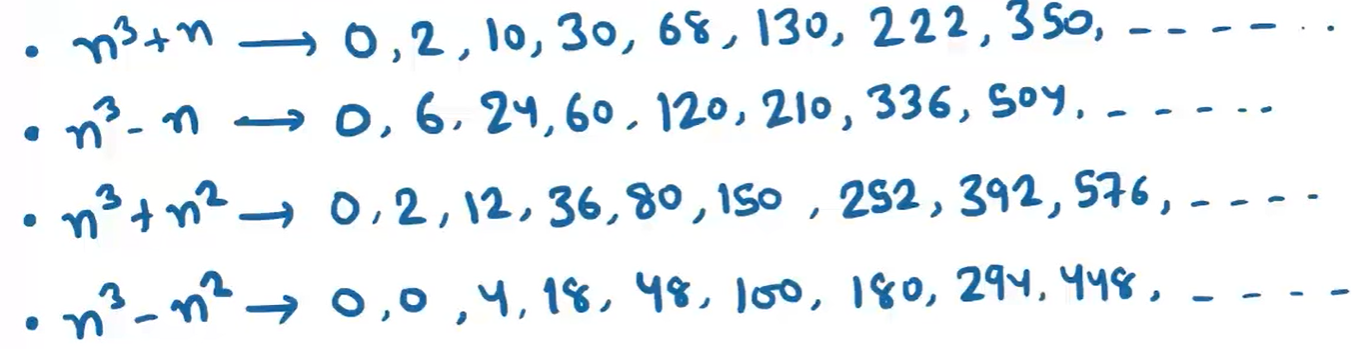 • n³+n → 0, 2, 10, 30, 68, 130, 222, 350, - - - - - . .
• n³-n → 0, 6, 24, 60, 120, 210, 336, 504, - - - - - -
• n³+n² → 0, 2, 12, 36, 80, 150, 252, 392, 576, - - - -
• n³-n² → 0, 0, 4, 18, 48, 100, 180, 294, 448, - - - -